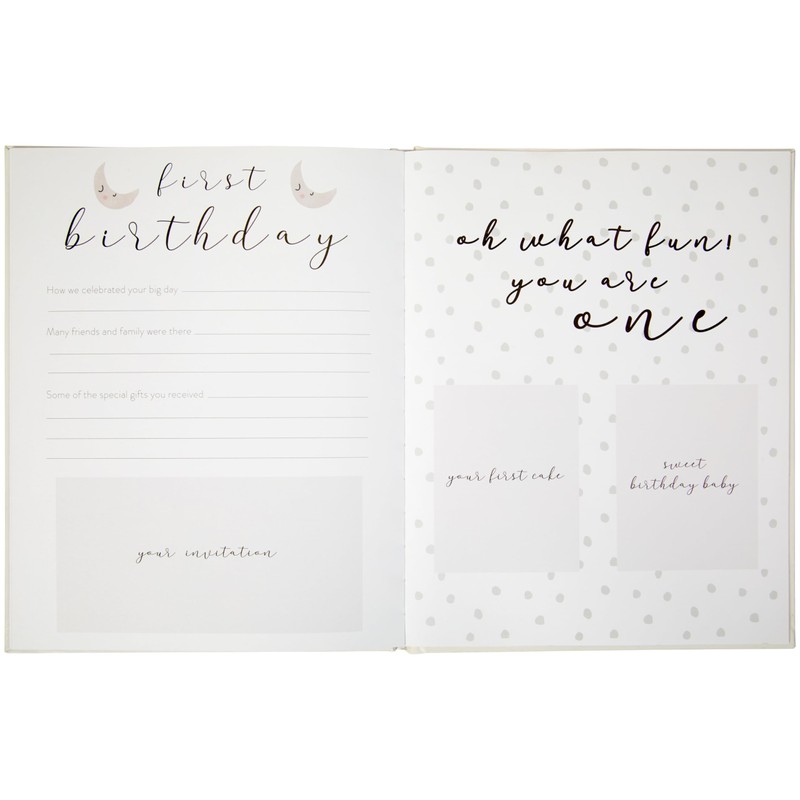 first
birthday
How we celebrated your big day
Many friends and family were there
Some of the special gifts you received
your invitation
oh what fun!
you are
one
your first cake
sweet
birthday baby